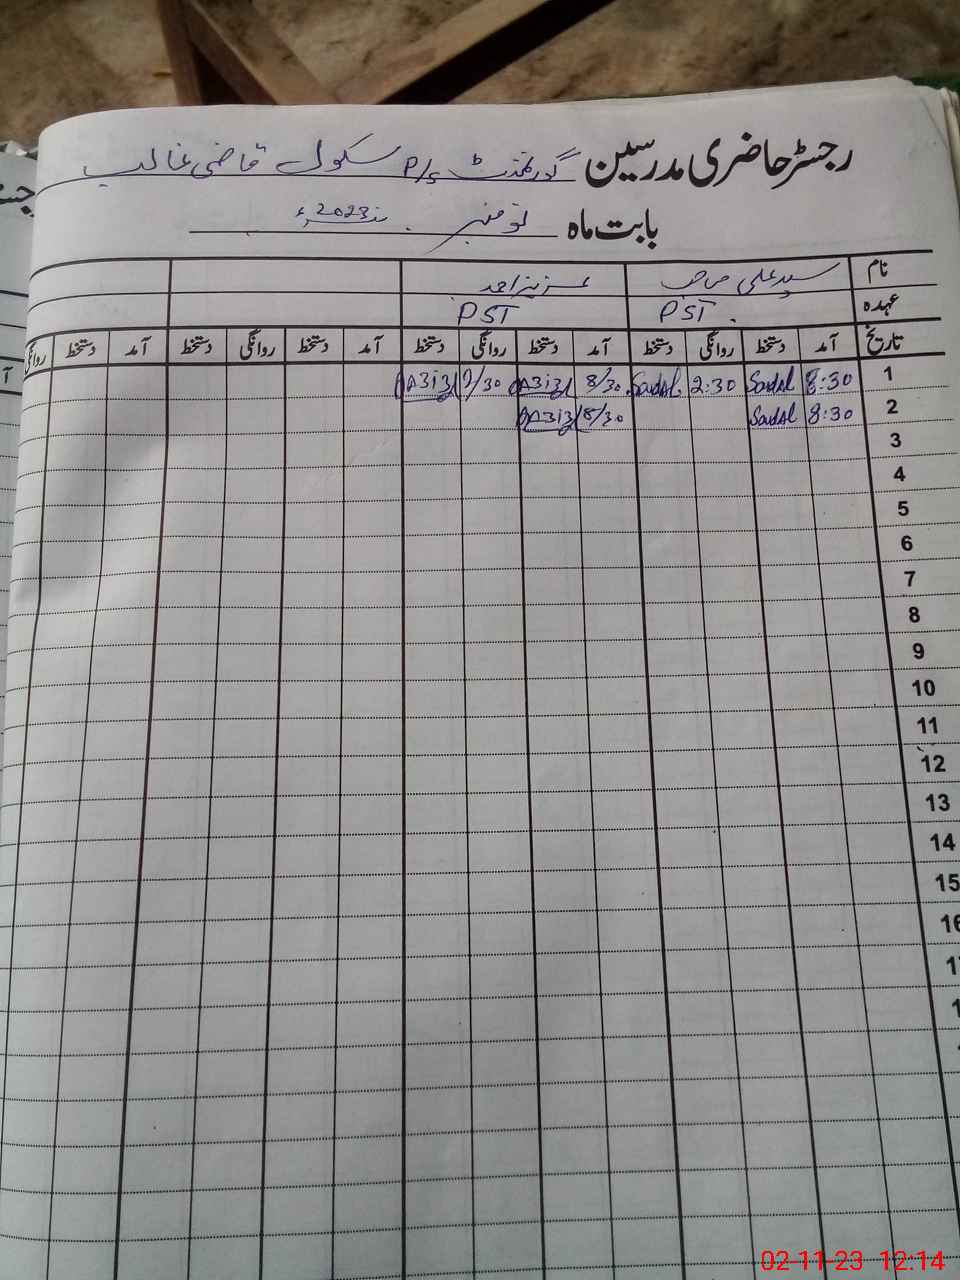 رجسٹر حاضری مدرسین گورنمنٹ P/S سکول قاضی غالب
بابت ماہ نومبر 2023ء
نام سید علی صاحب عزیز احمد
عہدہ PST. PST
تاریخ آمد دستخط روانگی دستخط آمد دستخط روانگی دستخط آمد دستخط روانگی دستخط آمد دستخط روانگی
1 8:30 2:30 8/30
2 8:30 8/30
3
4
5
6
7
8
9
10
11
12
13
14
15
02-11-23 12:14